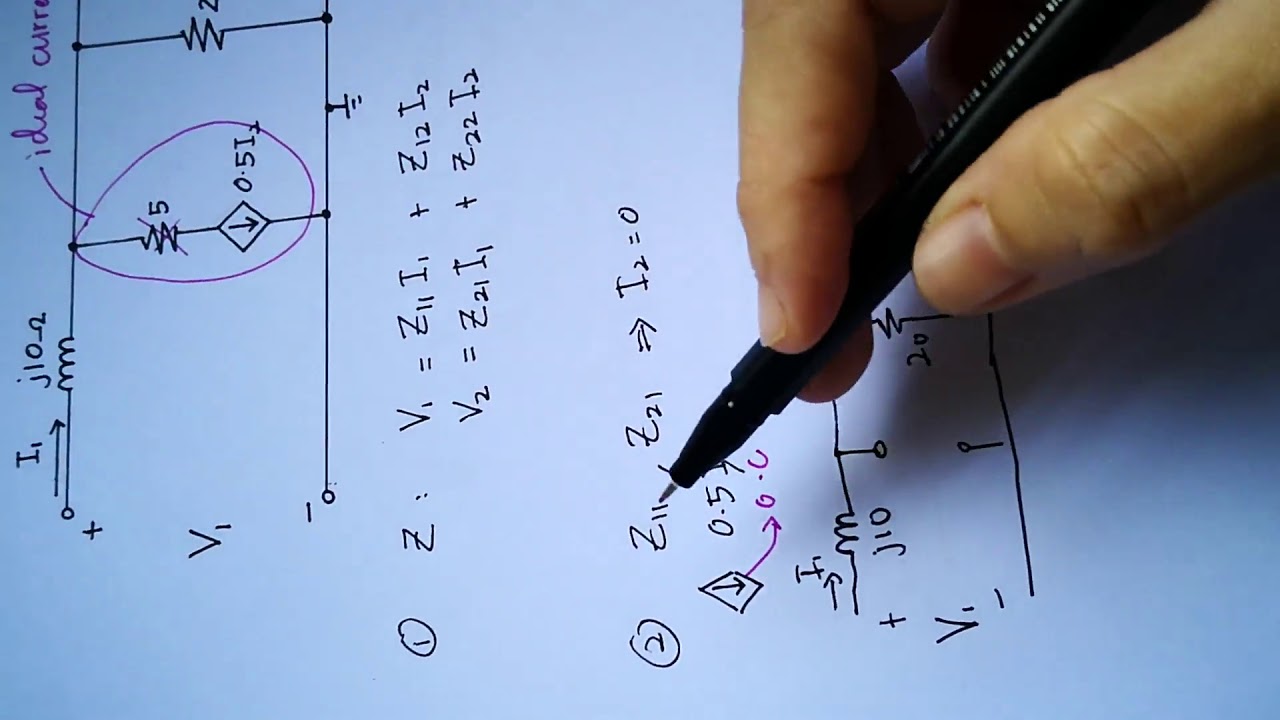 idual curre
I₁ j10Ω
+ V₁ −
5
0.5I₂
① Z : V₁ = Z₁₁ I₁ + Z₁₂ I₂
V₂ = Z₂₁ I₁ + Z₂₂ I₂
② Z₁₁, Z₂₁ ⇒ I₂ = 0
0.5I
0.C
I₁ j10
20
+ V₁ −